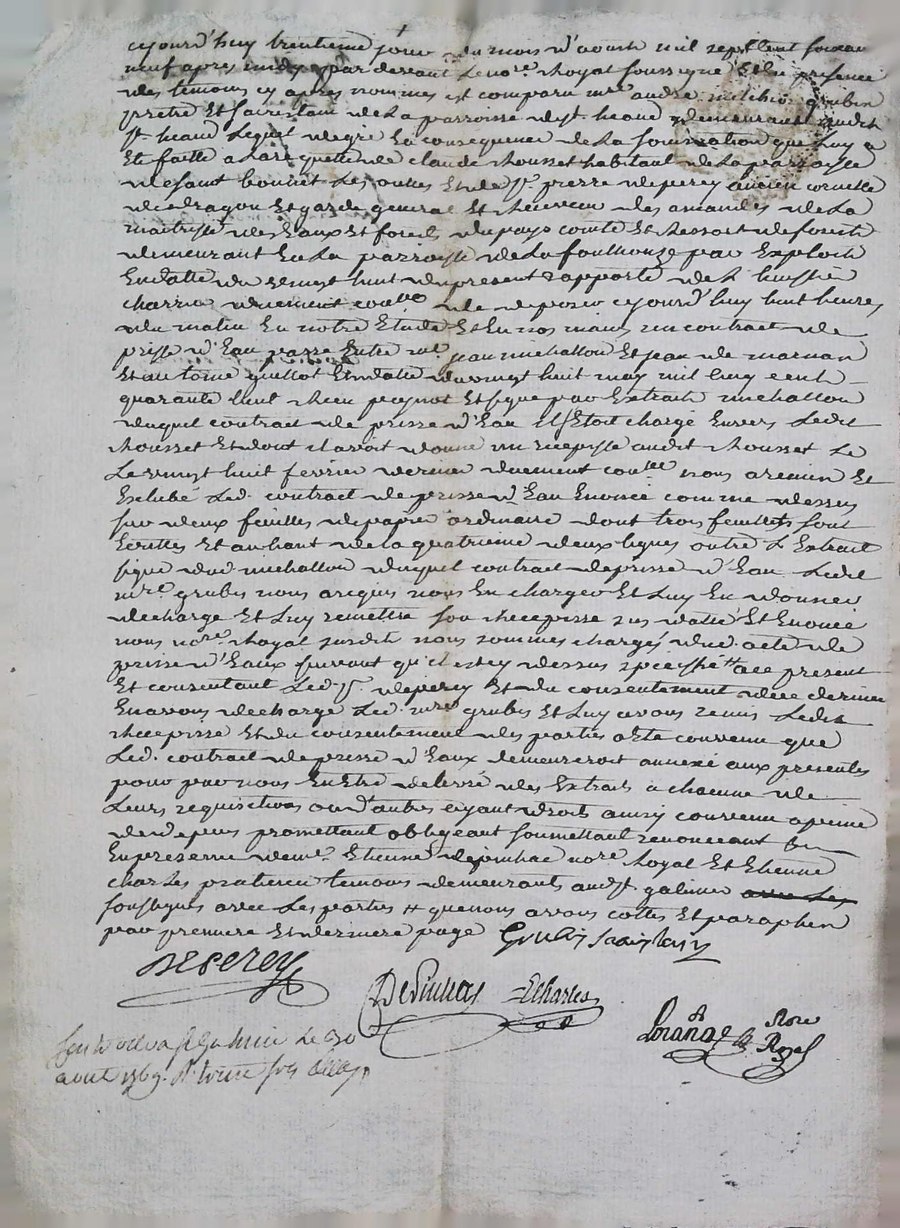 cejourd'huy trentieme jour du mois d'aoust mil sept cent soixan
neuf apres midy par devant le no.re Royal soussigné Et en presence
des temoins cy apres nommes est comparu m.re andré grubis
prêtre Et sacristain de la parroisse de st heand demeurant audit
st heand lequel de gré En consequence de la sommation que luy a
Ete faitte a la requette de claude Rousset habitant de la parroisse
de saint bonnet les oules Et de Sr. pierre deperey ancien cornette
de dragon Et garde general Et Receveur des amandes de la
maitrisse des Eaux Et forets du pays comté Et Ressort de forets
demeurant En la parroisse de la foullouze par Exploit
En datte du vingt huit du present rapporté de l'huissier
charrin duement con.llé de deposer cejourd'huy huit heures
du matin En notre Etude Et En nos mains un contract de
prisse d'Eau passé Entre m.e jean michallon Et jean de marnan
Et antoine guillot En datte du vingt huit may mil cinq cent
quarante huit Receu peynot Et signé par Extrait michallon
duquel contract de prisse d'Eau il s'Etoit chargé Envers ledit
Rousset Et dont il avoit donné un recepisse audit Rousset le
Le vingt huit fevrier dernier duement con.llé nous a remin Et
Exhibé led. contract de prisse d'Eau Enoncé comme dessus
sur deux feuilles de papier ordinaire dont trois feuillets sont
Ecrittes Et au haut de la quatrieme deux lignes outre l'Extrait
signé dud michallon duquel contract de prisse d'Eau ledit
m.re grubis nous a requis nous En charger Et luy En donner
decharge Et luy remettre son Recepisse sus datté Et Enoncé
nous no.re Royal susdit nous sommes chargés dud. acte de
prisse d'Eaux suivant qu'il est cy dessus specifié # a ce present
Et consentant led. Sr. deperey Et du consentement de ce dernier
En avons decharge led. m.re grubis Et luy avons remis ledit
Recepisse Et du consentement des parties a Eté convenu que
led. contract de prisse d'Eaux demeureroit annexé aux presentes
pour par nous En Etre delivré des Extraits a chacune de
leurs requisitions ou d'autres ayant droits ainsy convenu a peine
de depens promettant obligeant soumettant renonceant
En presence de m.e Etienne no.re Royal Et Etienne
charles praticien temoins demeurants aud st galmier avec les
soussignés avec les parties # que nous avons cottés Et paraphen
par premiere Et derniere page Grubis sacristain
DEPEREY
Echarles
Lorange Nore
Royal
a St Galmier le 30
aout 1769.